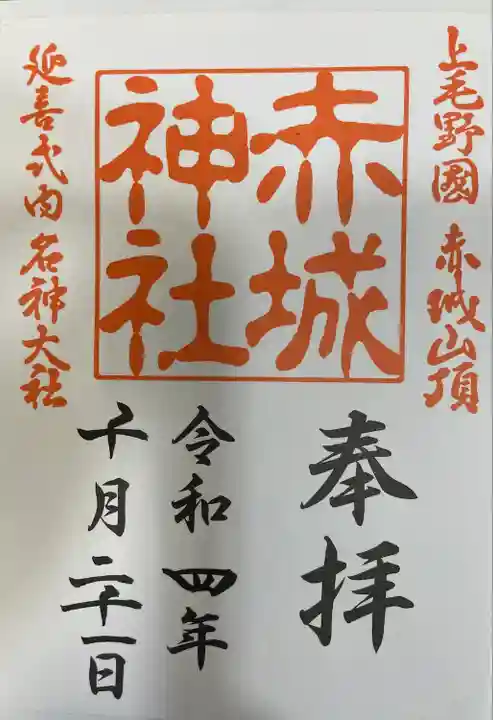 上毛野國 赤城山頂
赤城
神社
延喜式内 名神大社
奉拝
令和四年
千月二十一日